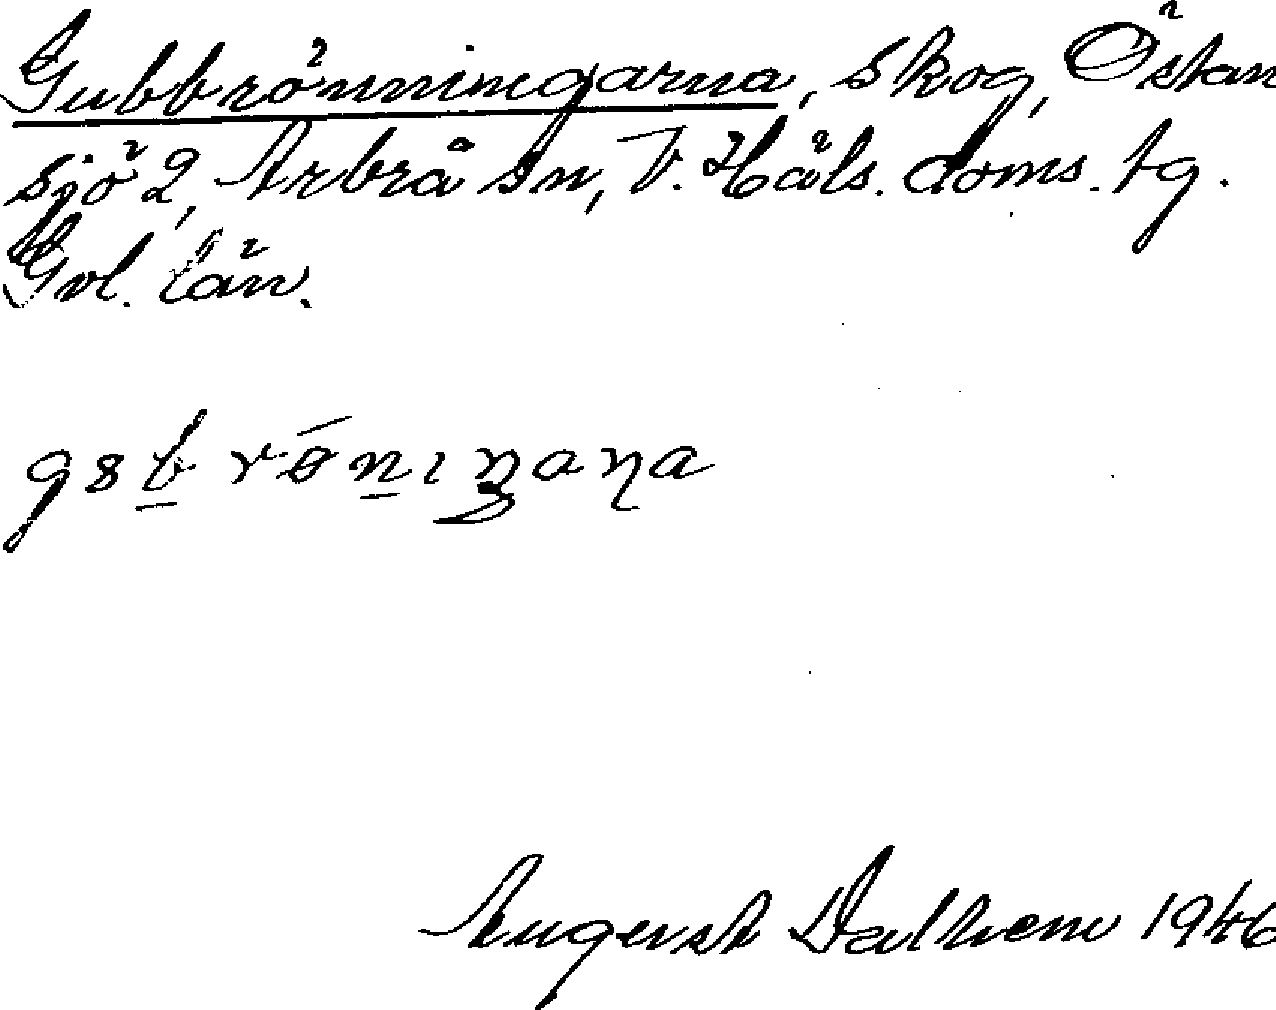 Gubbrönningarna, skog, Östan
sjö 2, Arbrå sn, V. Häls. doms. tg.
Gvl. län.
August Dalhem 1946